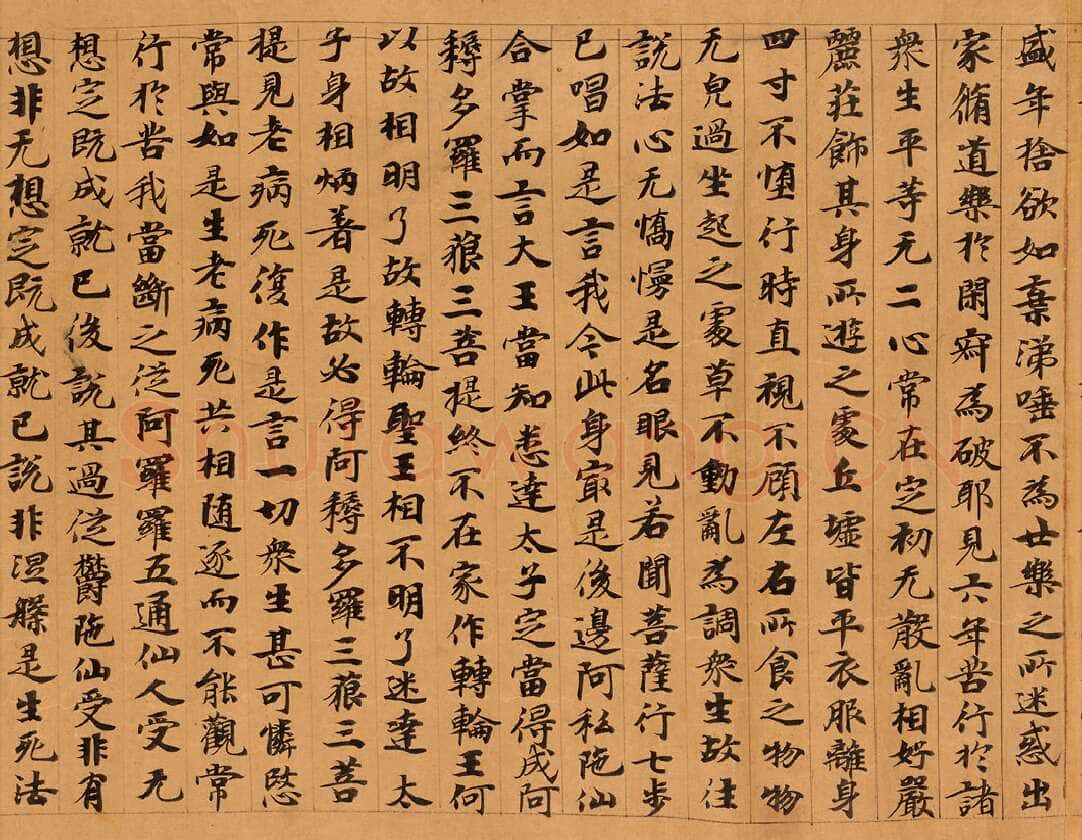 盛年捨欲如棄涕唾不為世樂之所迷惑出
家脩道樂於閑寂為破耶見六年苦行於諸
衆生平等无二心常在定初无散亂相好嚴
麗莊飾其身所遊之處丘墟皆平衣服離身
四寸不墮行時直視不顧左右所食之物物
无完過坐起之處草不動亂為調衆生故往
說法心无憍慢是名眼見若聞菩薩行七步
已唱如是言我今此身㝡是後邊阿私陁仙
合掌而言大王當知悉達太子定當得成阿
耨多羅三藐三菩提終不在家作轉輪王何
以故相明了故轉輪聖王相不明了悉達太
子身相炳著是故必得阿耨多羅三藐三菩
提見老病死復作是言一切衆生甚可憐愍
常與如是生老病死共相随逐而不能觀常
行於苦我當斷之從阿羅羅五通仙人受无
想定既成就已後說其過從欝陁仙受非有
想非无想定既成就已說非涅槃是生死法
Shufawang.CN